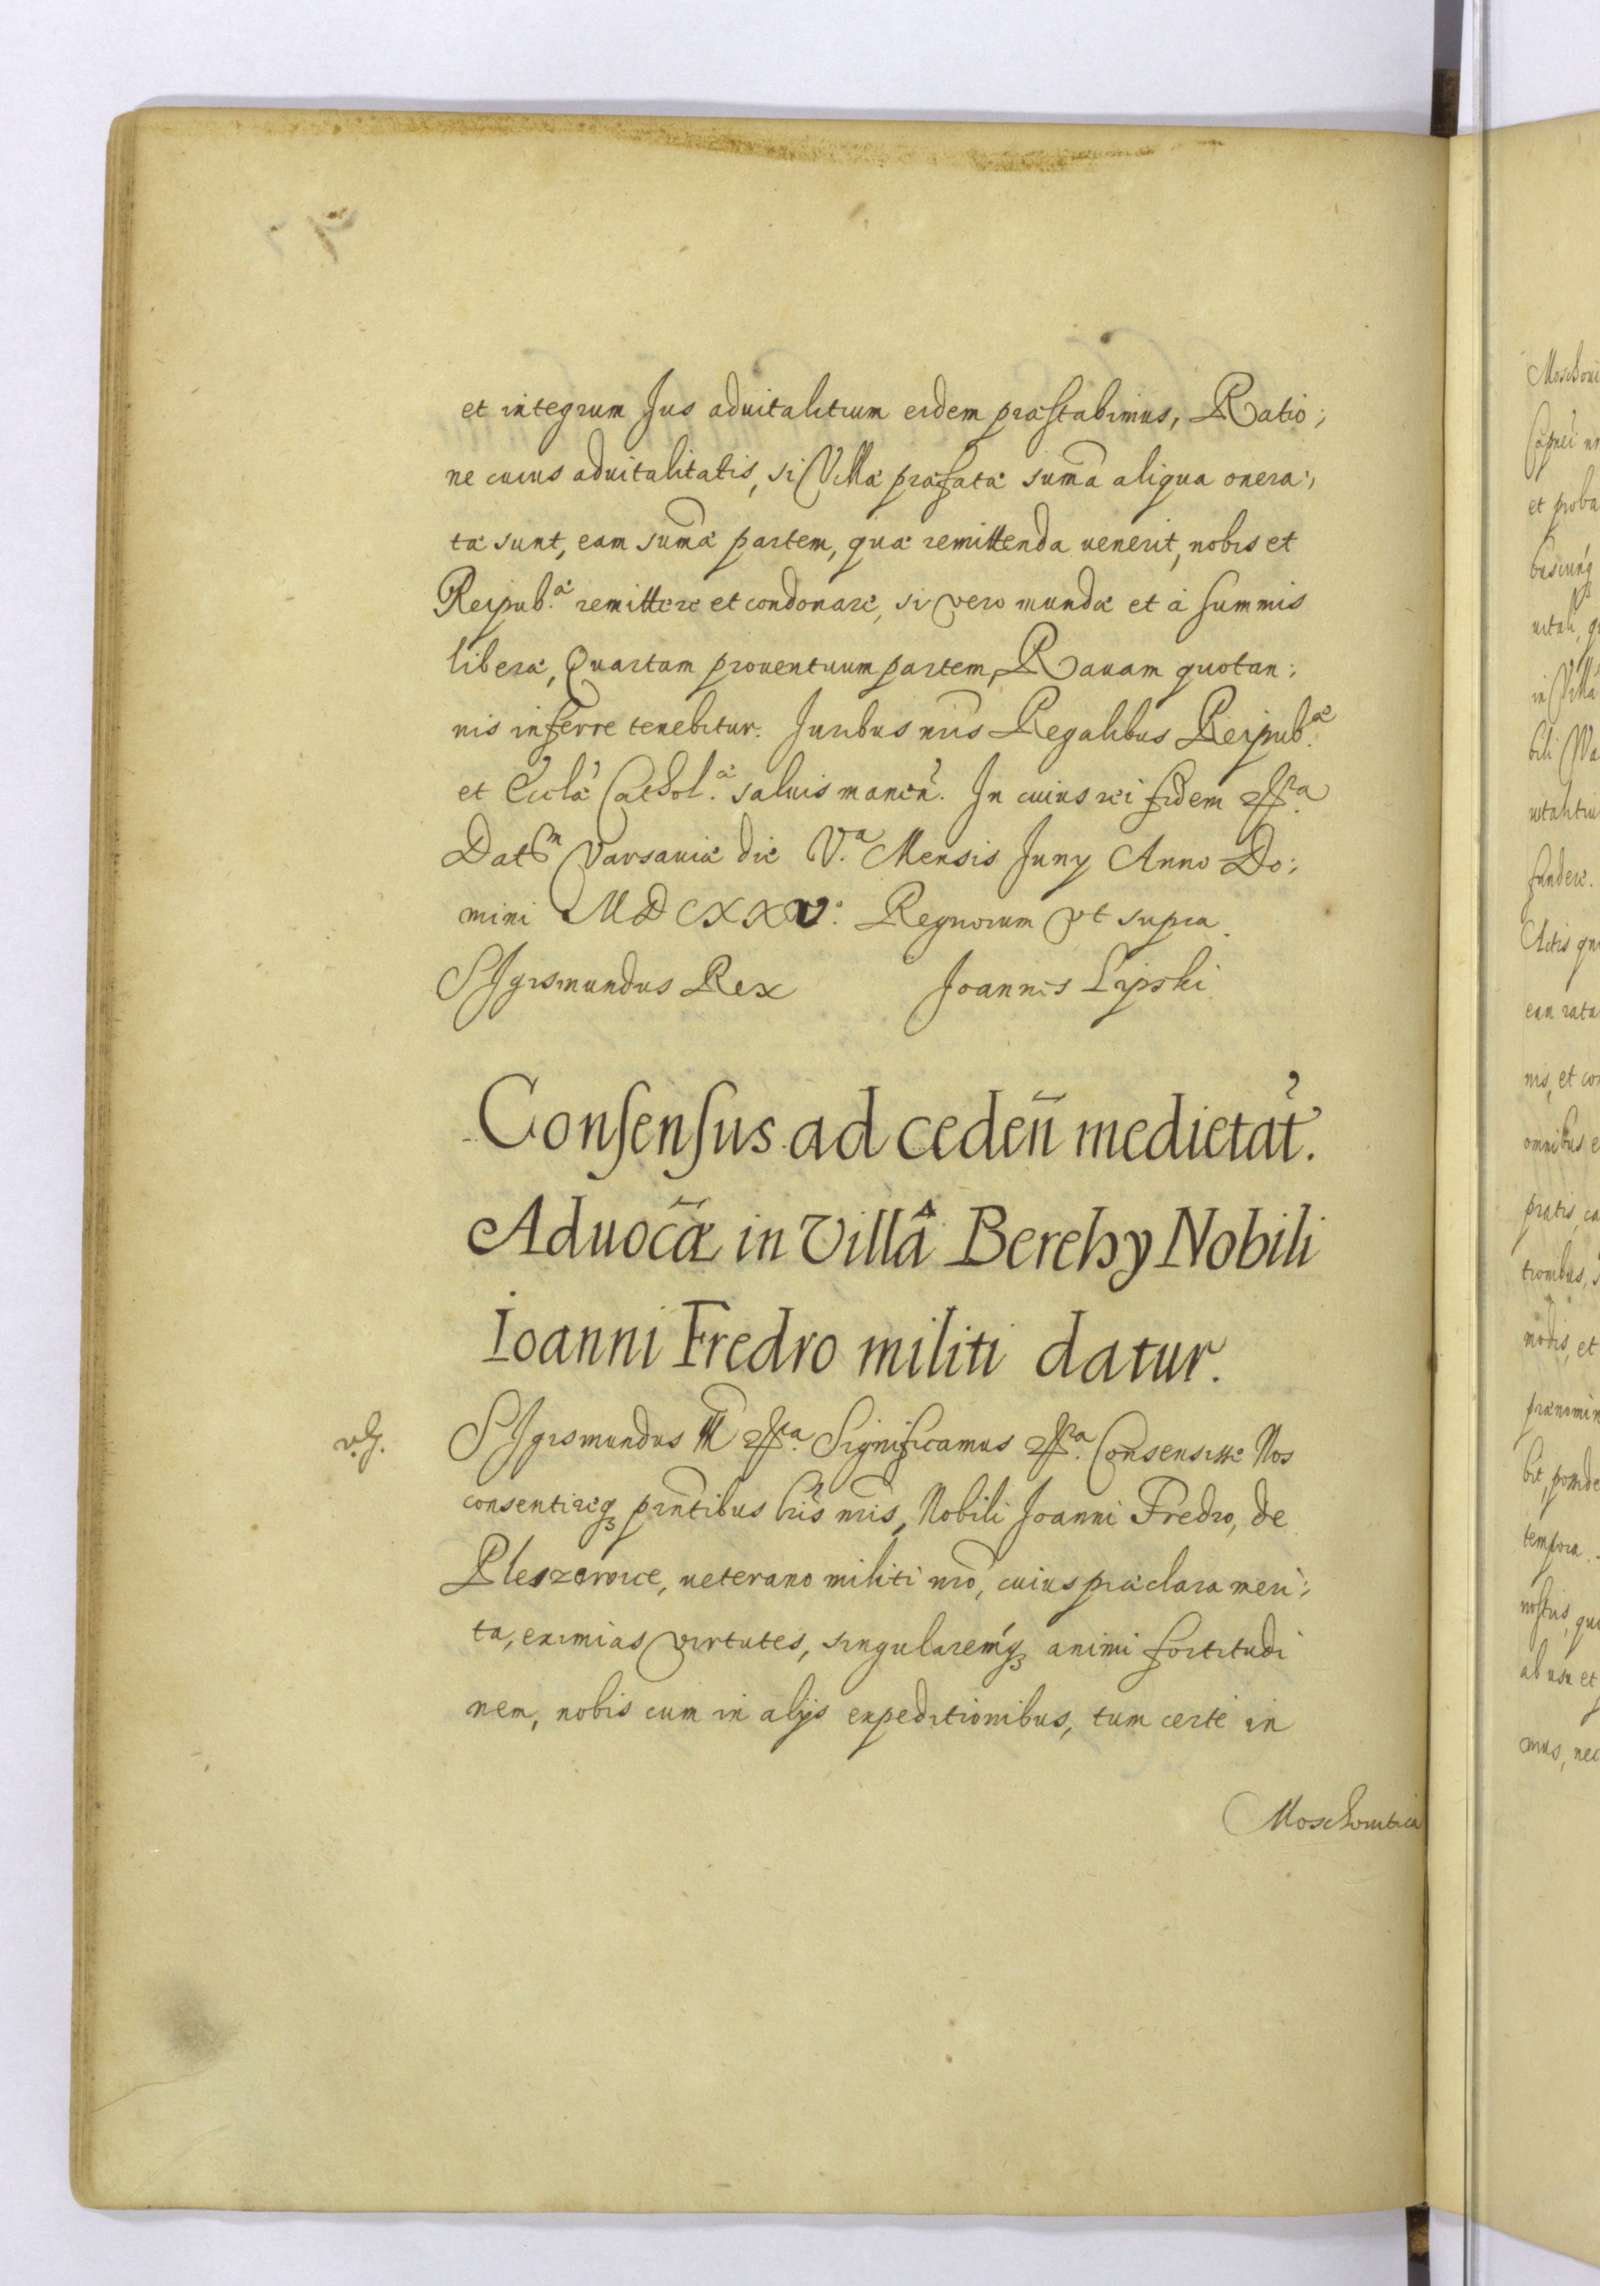 et integrum Jus aduitalitium eidem præstabimus, Ratio;
ne cuius aduitalitatis, si Villæ præfatæ sum̃a aliqua onera;
tæ sunt, eam sum̃æ partem, quæ remittenda uenerit, nobis et
Reipub.æ remittere et condonare, si vero mundæ et à summis
liberæ, Quartam prouentuum partem, Rauam quotan;
nis inferre tenebitur. Juribus nr̃is Regalibus Reipub.æ
et Eccl̃æ Cathol.æ saluis maneñ. In cuius rei fidem etc.a
Datm Varsauiæ die V.a Mensis Juny Anno Do;
mini MDCXXV. Regnorum vt supra.
SIgismundus Rex Joannes Lipski
Consensus ad cedeñ medietat̃.
Aduoc̃æ in Villâ Berehy Nobili
Ioanni Fredro militi datur.
SIgismundus III etc.a Significamus etc.a Consensisse Nos
consentireq₃ prñtibus lr̃is nr̃is, Nobili Joanni Fredro, de
Pleszowice, ueterano militi nr̃o, cuius præclara meri;
ta, eximias virtutes, singularemq́₃ animi fortitudi
nem, nobis cum in alijs expeditionibus, tum certè in
Moschouitica
Moschoui
et proba
uitali, q
in Villa
bili Wa
fundere.
Actis qu
eam rata
nis, et con
omnibus e
pratis, ca
modis, et
prænomin
tempora.
nostris, qu
ab usu et
mus, nec